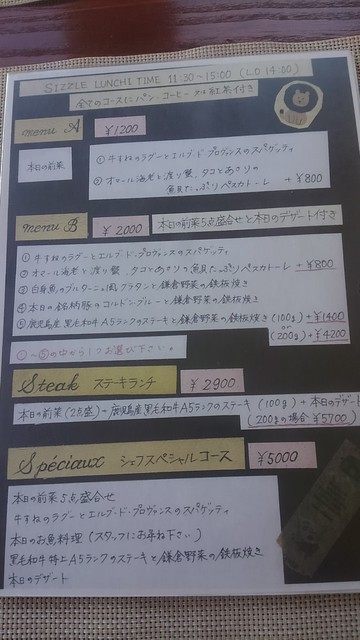 SIZZLE LUNCH TIME 11:30~15:00 (LO 14:00)
全てのコースにパン・コーヒー又は紅茶付き
menu A ¥1200
本日の前菜
① 牛すねのラグーとエルブ・ド・プロヴァンスのスパゲッティ
② オマール海老と渡り蟹、タコとあさりの
魚貝たっぷりペスカトーレ +¥800
menu B ¥2000 本日の前菜5点盛合せと本日のデザート付き
① 牛すねのラグーとエルブ・ド・プロヴァンスのスパゲッティ
② オマール海老と渡り蟹、タコとあさりの魚貝たっぷりペスカトーレ +¥800
③ 白身魚のブルターニュ風グラタンと鎌倉野菜の鉄板焼き
④ 本日の銘柄豚のコルドン・ブルーと鎌倉野菜の鉄板焼き
⑤ 鹿児島産黒毛和牛A5ランクのステーキと鎌倉野菜の鉄板焼き (100g)+¥1400
or
(200g)+¥4200
①~⑤の中から1つお選び下さい。
Steak ステーキランチ ¥2900
本日の前菜(2点盛)+鹿児島産黒毛和牛A5ランクのステーキ(100g)+本日のデザート
(200gの場合¥5700)
Spéciaux シェフスペシャルコース ¥5000
本日の前菜5点盛合せ
牛すねのラグーとエルブ・ド・プロヴァンスのスパゲッティ
本日のお魚料理(スタッフにお尋ね下さい)
黒毛和牛特上A5ランクのステーキと鎌倉野菜の鉄板焼き
本日のデザート